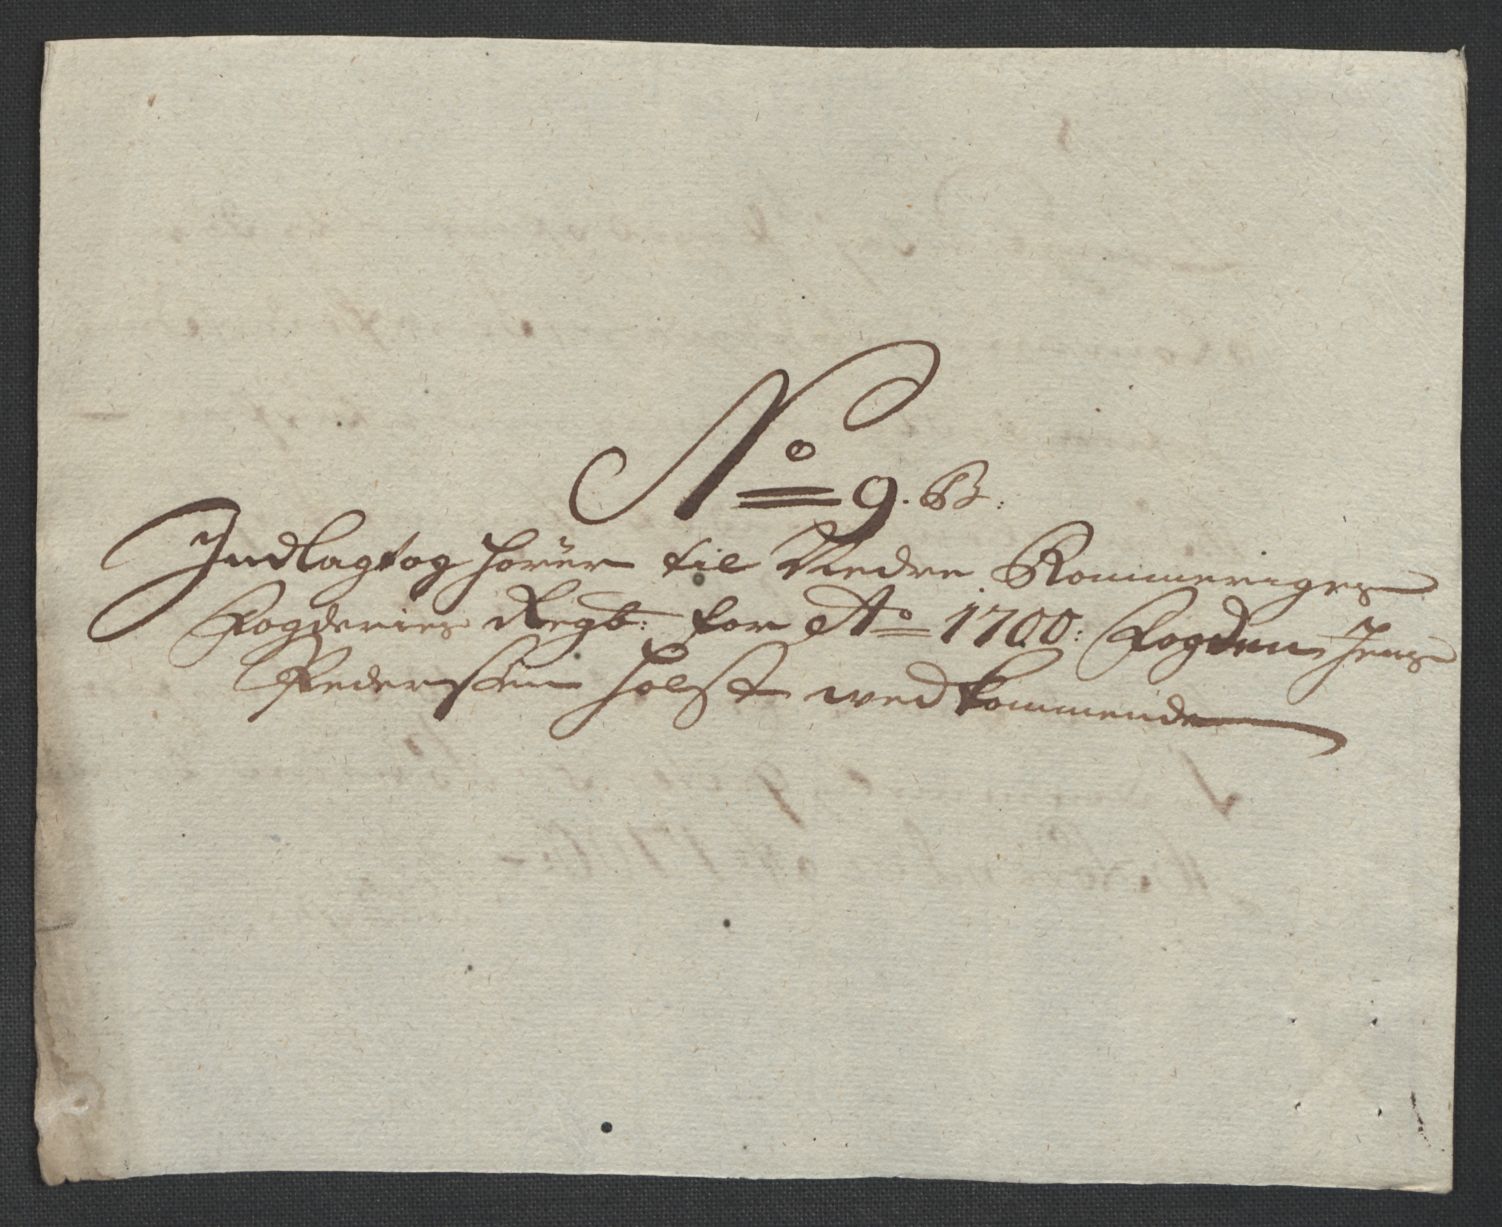 No 9. B:
Indlagt og hører til Nedre Rommeriges
Fogderies Regb: for Ao 1700: Fogden Jens
Pedersen Holst wedkommende